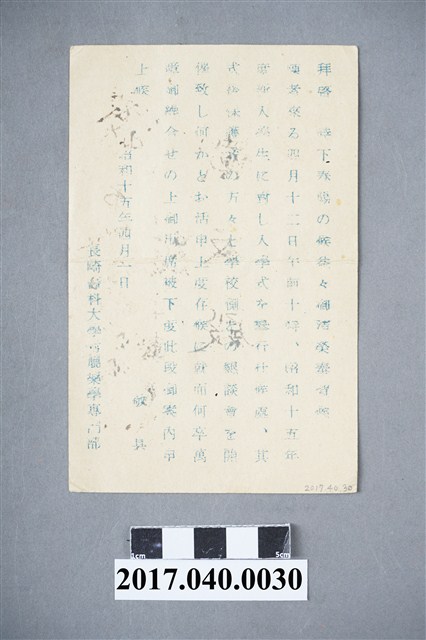 拝啓 時下春暖の候益々御清栄奉賀候
陳者来る四月十二日午前十時、昭和十五年
度新入学生に対し入学式を挙行仕候処、其
式後保護者の方々と学校側との懇談会を開
催致し何かとお話申上度存候に就而何卒萬
障御繰合せの上御出席被下度此段御案内申
上候 敬具
昭和十五年四月一日
長崎医科大学附属薬学専門部
2017.40.30
1cm 5cm
2017.040.0030